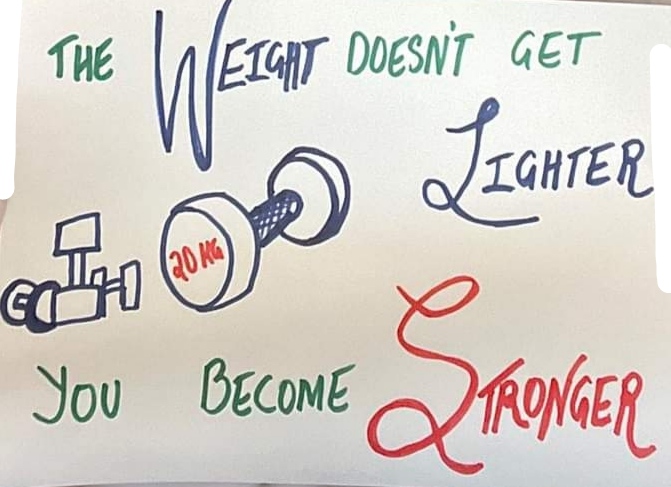 THE WEIGHT DOESN'T GET
LIGHTER
20 KG
YOU BECOME STRONGER